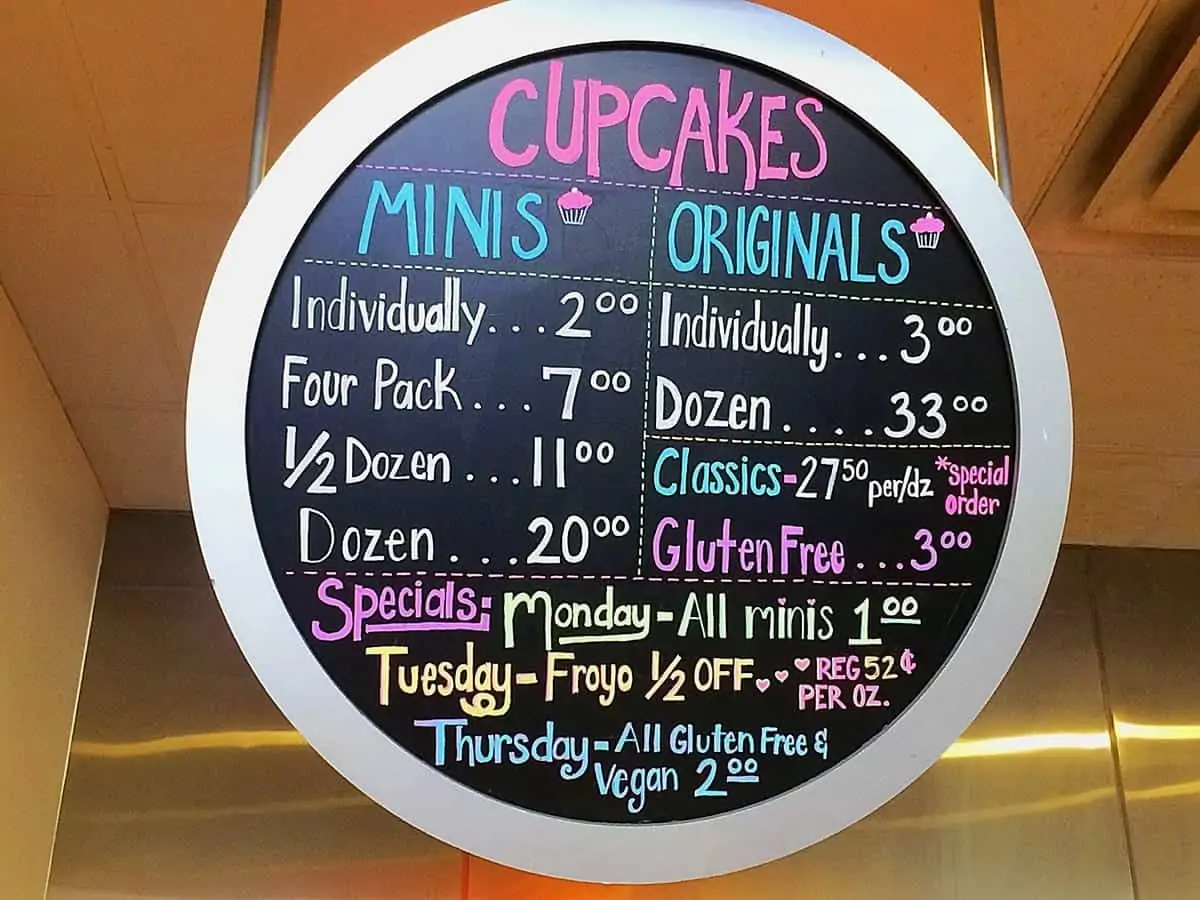 CUPCAKES
MINIS
Individually...2⁰⁰
Four Pack...7⁰⁰
1/2 Dozen...11⁰⁰
Dozen...20⁰⁰
ORIGINALS
Individually...3⁰⁰
Dozen....33⁰⁰
Classics-27⁵⁰ per/dz *special order
Gluten Free...3⁰⁰
Specials: Monday-All minis 1⁰⁰
Tuesday-Froyo 1/2 OFF ♥ ♥ ♥ REG 52¢
PER OZ.
Thursday-All Gluten Free &
Vegan 2⁰⁰